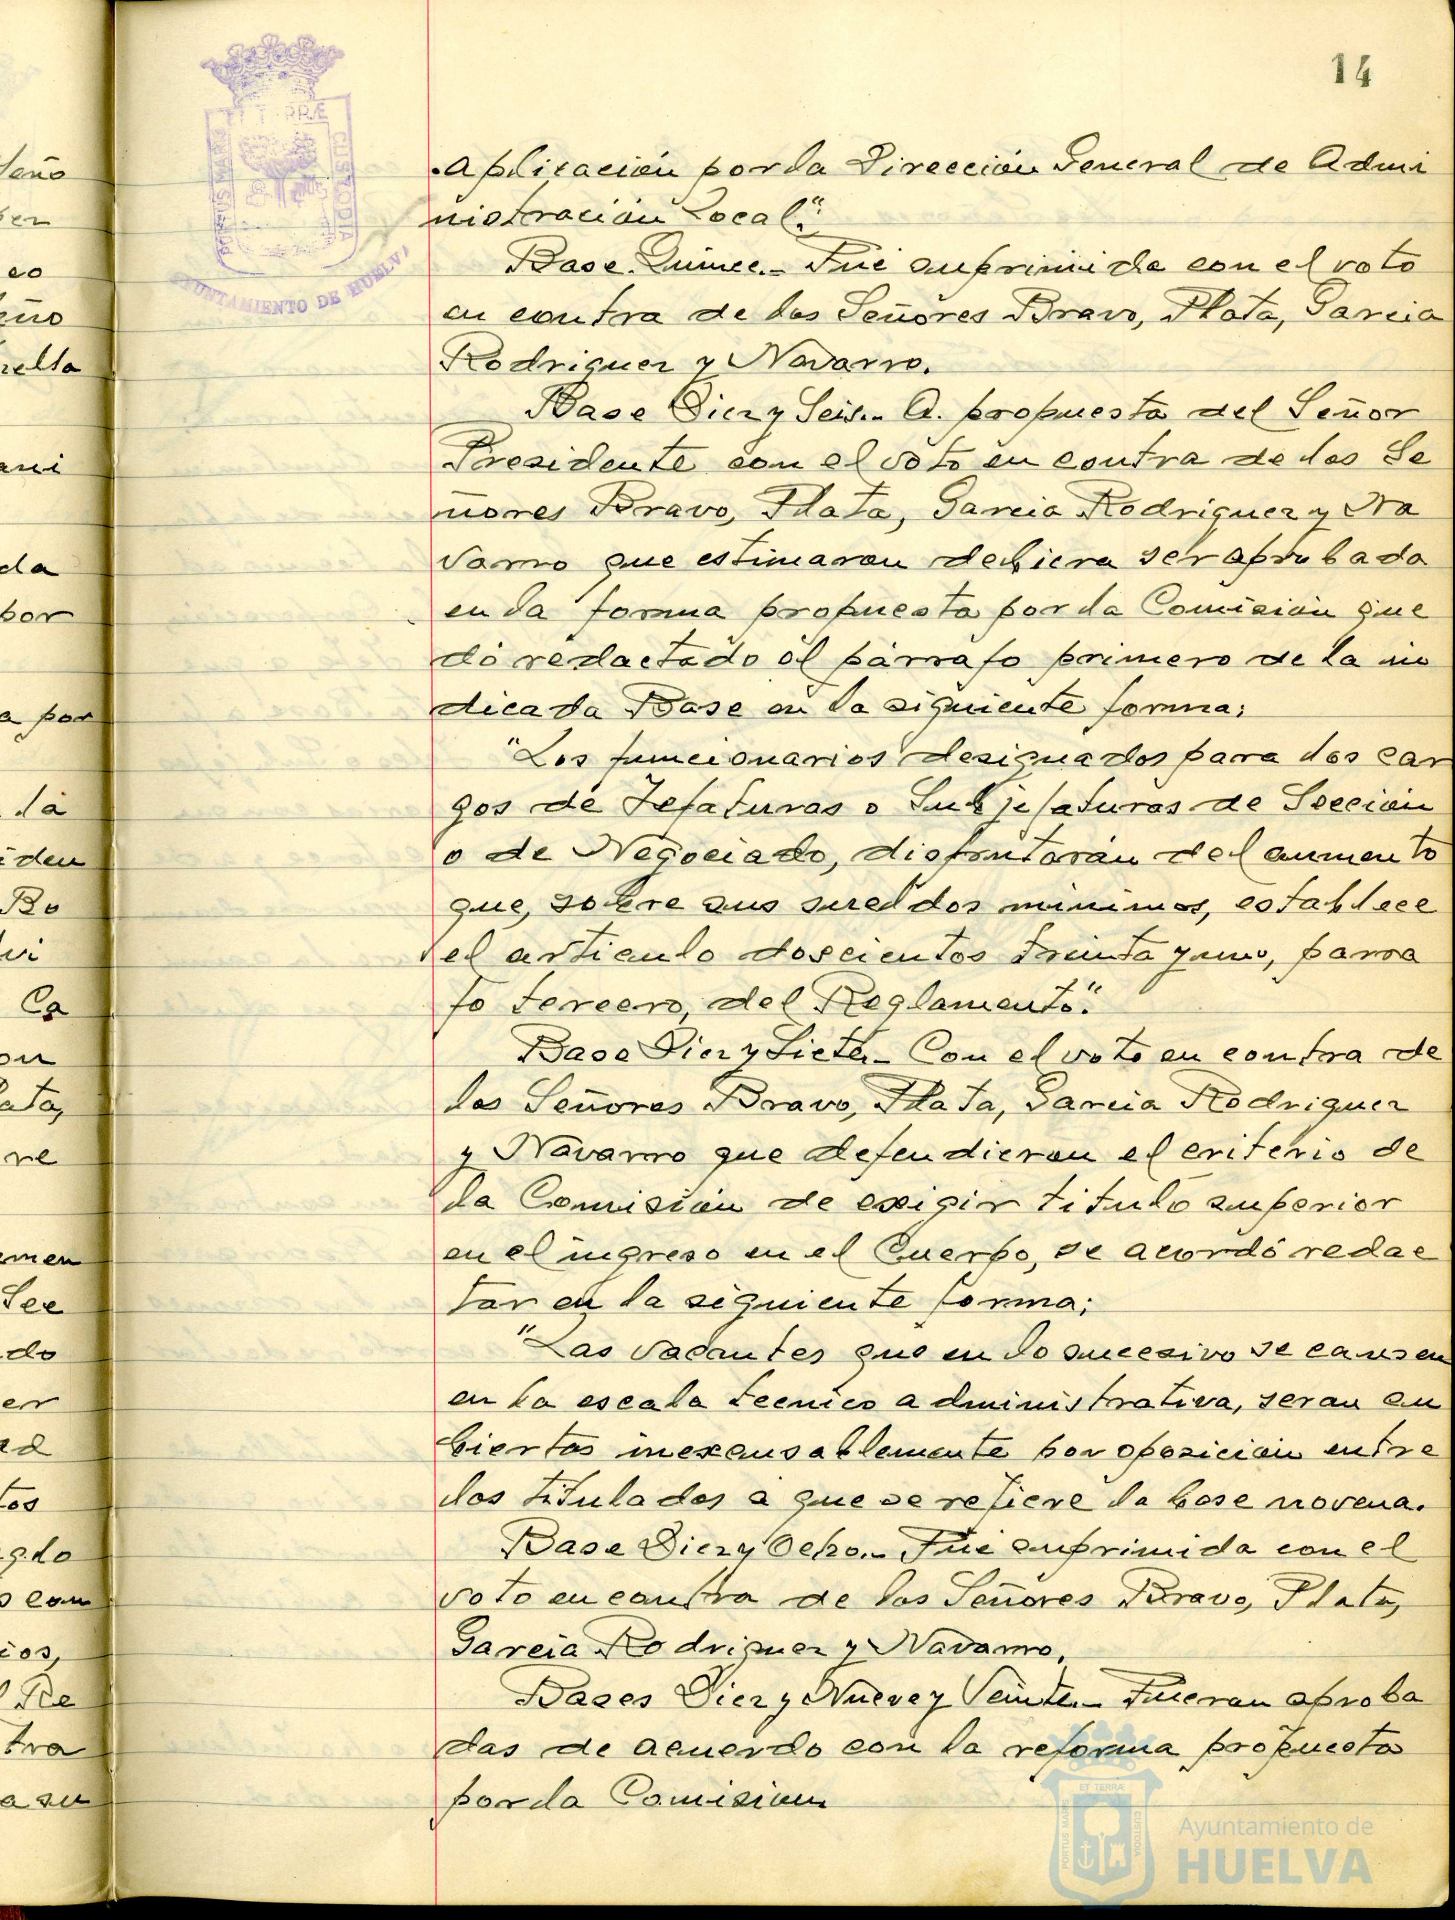 14
aplicación por la Dirección General de Admi
nistración Local".
Base Quince.- Fué suprimida con el voto
en contra de los Señores Bravo, Plata, Garcia
Rodriguez y Navarro.
Base Diez y Seis.- A propuesta del Señor
Presidente con el voto en contra de los Se
ñores Bravo, Plata, Garcia Rodriguez y Na
varro que estimaron debiera ser aprobada
en la forma propuesta por la Comisión que
dó redactado el párrafo primero de la in
dicada Base en la siguiente forma:
"Los funcionarios designados para los car
gos de Jefaturas o Subjefaturas de Sección
o de Negociado, disfrutarán del aumento
que, sobre sus sueldos minimos, establece
el articulo doscientos treinta y uno, parra
fo tercero, del Reglamento".
Base Diez y Siete.- Con el voto en contra de
los Señores Bravo, Plata, Garcia Rodriguez
y Navarro que defendieron el criterio de
la Comisión de exigir titulo superior
en el ingreso en el Cuerpo, se acordó redac
tar en la siguiente forma:
"Las vacantes que en lo sucesivo se causen
en la escala tecnico administrativa, seran cu
biertas inexcusablemente por oposición entre
los titulados a que se refiere la base novena.
Base Diez y Ocho.- Fué suprimida con el
voto en contra de los Señores Bravo, Plata,
Garcia Rodriguez y Navarro.
Bases Diez y Nueve y Veinte.- Fueron aproba
das de acuerdo con la reforma propuesta
por la Comision
PORTUS MARIS
ET TERRÆ
CUSTODIA
AYUNTAMIENTO DE HUELVA
leño
co
da
por
a por
la
iden
Bo
vi
Ca
on
ata,
re
men
Sec
do
er
ad
tos
gdo
o con
ios,
l Re
tra
a su
PORTUS MARIS
ET TERRÆ
CUSTODIA
Ayuntamiento de
HUELVA